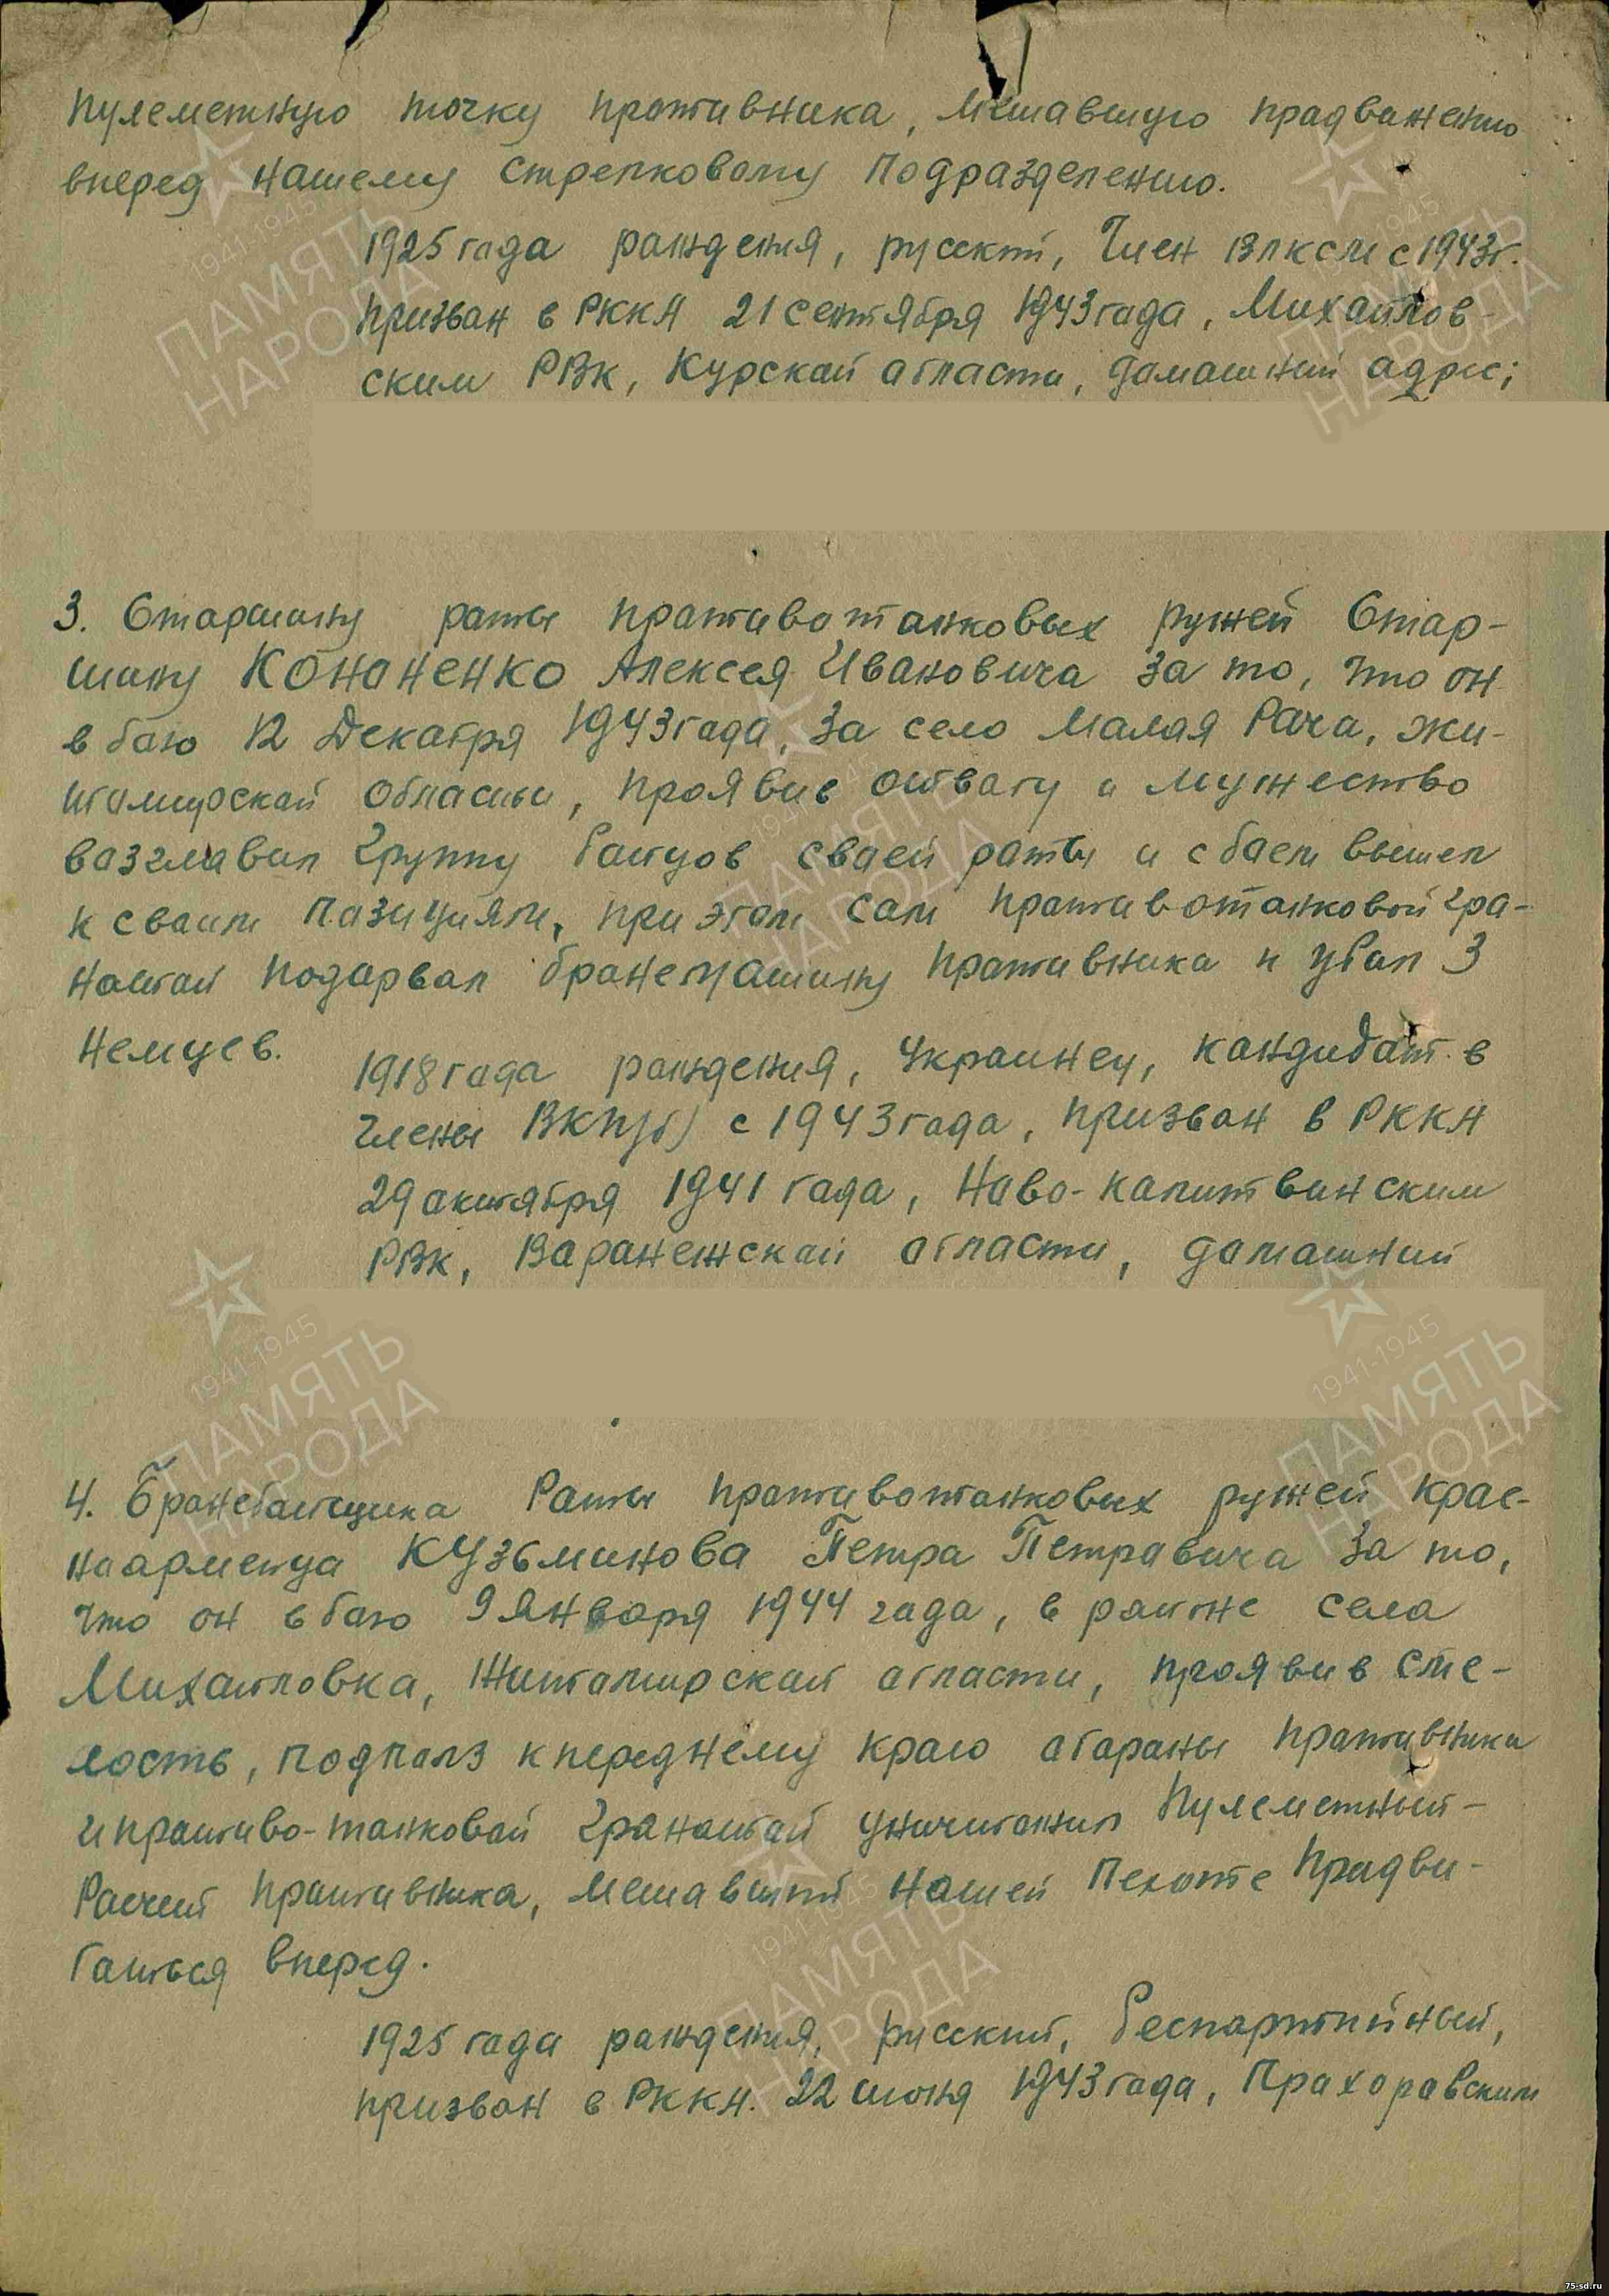 пулеметную точку противника, мешавшую продвижению
вперед нашему стрелковому подразделению.
1925 года рождения, русский, Член ВЛКСМ с 1943г.
призван в РККА 21 сентября 1943 года, Михайлов-
ским РВК, Курской области, домашний адрес;
3. Старшину роты противотанковых ружей Стар-
шину КОНОНЕНКО Алексея Ивановича за то, что он
в бою 12 Декабря 1943 года, за село Малая Рача, Жи-
томирской области, проявив отвагу и мужество
возглавил группу бойцов своей роты и с боем вышел
к своим позициям, при этом сам противотанковой гра-
натой подорвал бронемашину противника и убил 3
немцев.
1918 года рождения, Украинец, кандидат в
члены ВКП(б) с 1943 года, призван в РККА
29 октября 1941 года, Ново-Калитвинским
РВК, Воронежской области, домашний
4. Бронебойщика Роты противотанковых ружей крас-
ноармейца КУЗЬМИНОВА Петра Петровича за то,
что он в бою 9 Января 1944 года, в районе села
Михайловка, Житомирской области, проявив сме-
лость, подполз к переднему краю обороны противника
и противо-танковой гранатой уничтожил пулеметный-
Расчет противника, мешавший нашей пехоте продви-
гаться вперед.
1925 года рождения, русский, беспартийный,
призван в РККА. 22 июня 1943 года, Прохоровским
1941-1945
ПАМЯТЬ
НАРОДА
1941-1945
ПАМЯТЬ
НАРОДА
1941-1945
ПАМЯТЬ
НАРОДА
1941-1945
ПАМЯТЬ
НАРОДА
1941-1945
ПАМЯТЬ
НАРОДА
1941-1945
ПАМЯТЬ
НАРОДА
75-sd.ru